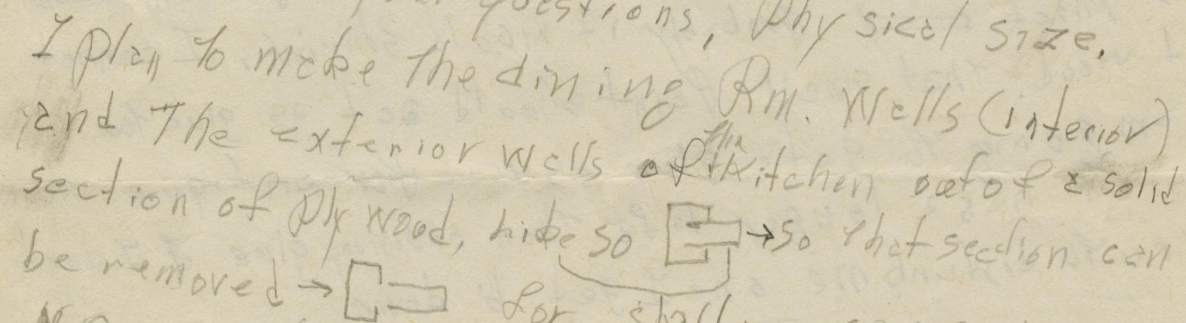 questions, Physical size.
I plan to make the dining Rm. Walls (interior)
and The exterior walls of the kitchen out of a solid
section of Ply wood, so → so that section can
be removed → for